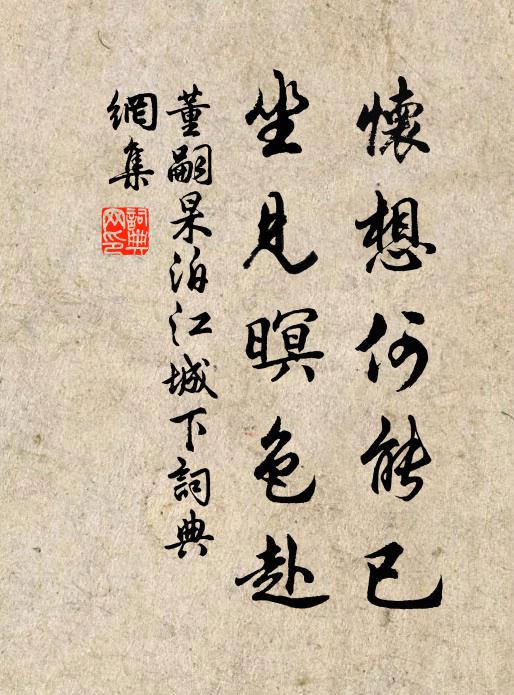 懷想何能已
坐見暝色赴
董嗣杲泊江城下詞典
網集
詞典網印